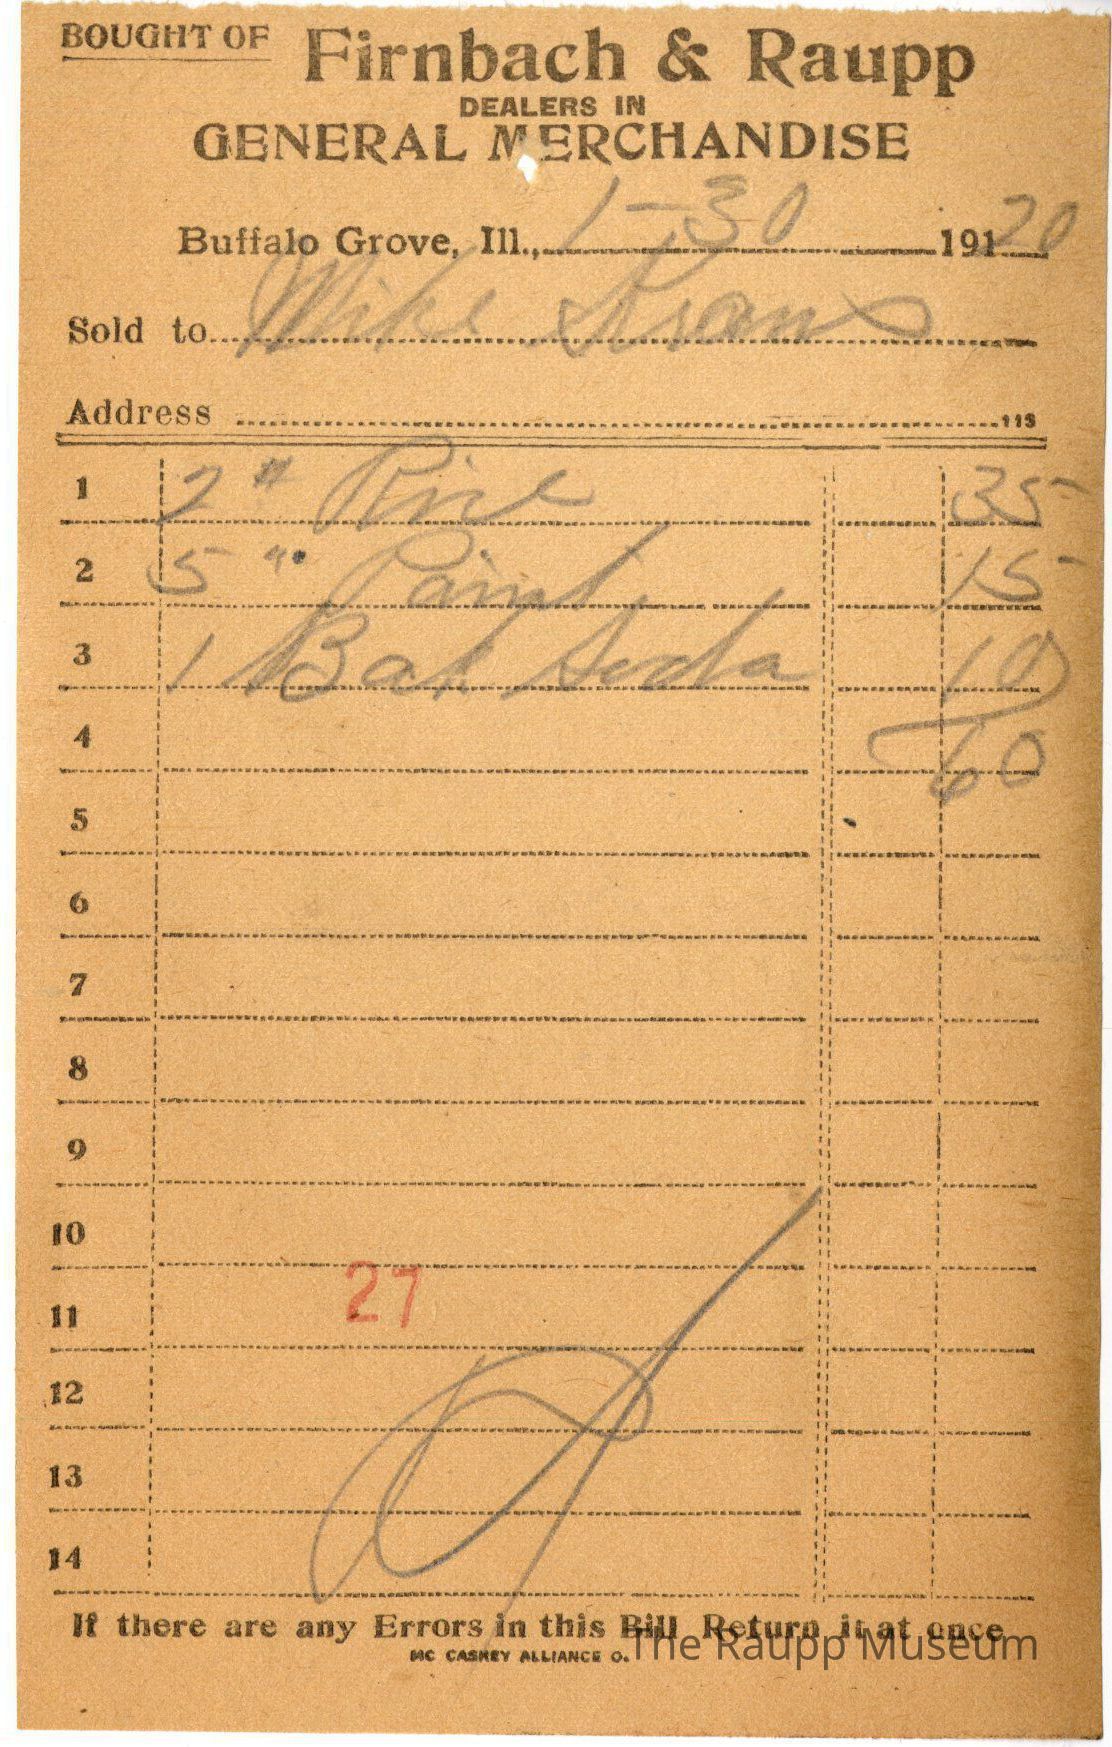 BOUGHT OF Firnbach & Raupp
DEALERS IN
GENERAL MERCHANDISE
Buffalo Grove, Ill., 1-30 191 20
Sold to Mike Krans
Address 113
1 2 # Rice 35
2 5 " Paint 15
3 1 Bak Soda 10
4 60
5
6
7
8
9
10
11 27
12
13
14
If there are any Errors in this Bill Return it at once
MC CASKEY ALLIANCE O.
The Raupp Museum